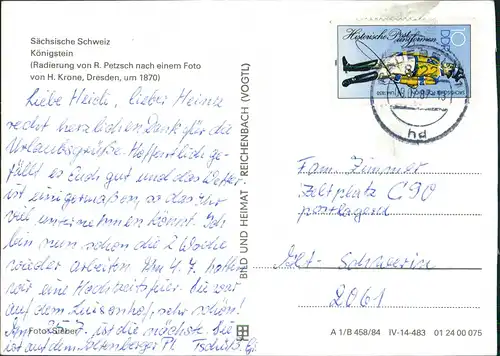 Sächsische Schweiz
Königstein
(Radierung von R. Petzsch nach einem Foto
von H. Krone, Dresden, um 1870)
Liebe Heidi, lieber Heinz
recht herzlichen Dank für die
Urlaubsgrüße. Hoffentlich ge-
fällt es Euch gut und das Wetter
ist einigermaßen, so das Ihr
viel unternehmen könnt. Ich
bin nun schon die 2. Woche
wieder arbeiten. Am 4.7. hatten
wir eine Hochzeitsfeier. Sie war
auf dem Luisenhof, sehr schön!
Am 25.7. ist die nächste. Sie
ist auf dem Pl. Tschüß
Foto: Gieber
BILD UND HEIMAT · REICHENBACH (VOGTL)
Historische Postuniformen
DDR
10
hd
Fam. Zimmer
Zeltplatz C90
postlagernd
Alt-Schwerin
2061
A 1/B 458/84 IV-14-483 01 24 00 075